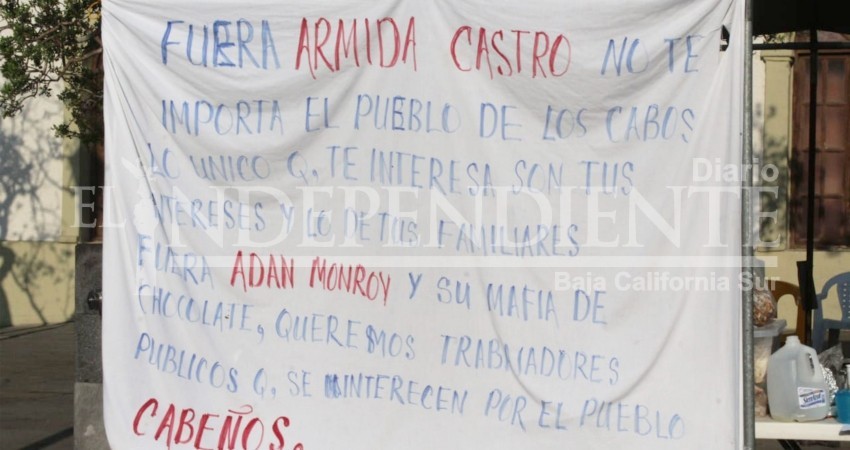 FUERA ARMIDA CASTRO NO TE
IMPORTA EL PUEBLO DE LOS CABOS
LO UNICO Q, TE INTERESA SON TUS
INTERESES Y LO DE TUS FAMILIARES
FUERA ADAN MONROY Y SU MAFIA DE
CHOCOLATE, QUEREMOS TRABAJADORES
PUBLICOS Q, SE INTERECEN POR EL PUEBLO
CABEÑOS.
Diario
EL INDEPENDIENTE
Baja California Sur